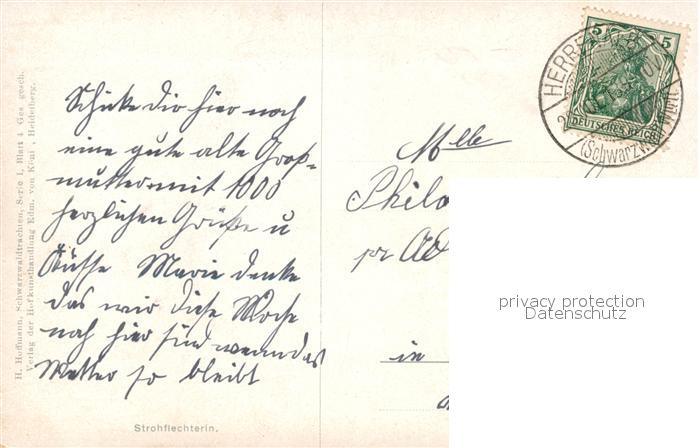 H. Hoffmann, Schwarzwaldtrachten, Serie I, Blatt 4 Ges. gesch.
Verlag der Hofkunsthandlung Edm. von König, Heidelberg.
Schicke dir hier noch
eine gute alte Groß-
mutter mit 1000
herzlichen Grüße u
Küsse Marie denke
das wir diese Woche
noch hier sind wenn das
Wetter so bleibt
Strohflechterin.
5 5
DEUTSCHES REICH
HERRE
(Schwarzw
Württ.
Mlle
Philo
pr Ad
in
privacy protection
Datenschutz